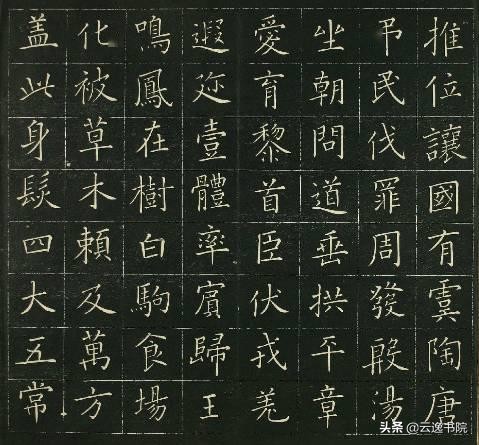 推位讓國有虞陶唐
弔民伐罪周發殷湯
坐朝問道垂拱平章
愛育黎首臣伏戎羌
遐迩壹體率賓歸王
鳴鳳在樹白駒食場
化被草木賴及萬方
蓋此身髮四大五常
头条@云逸书院